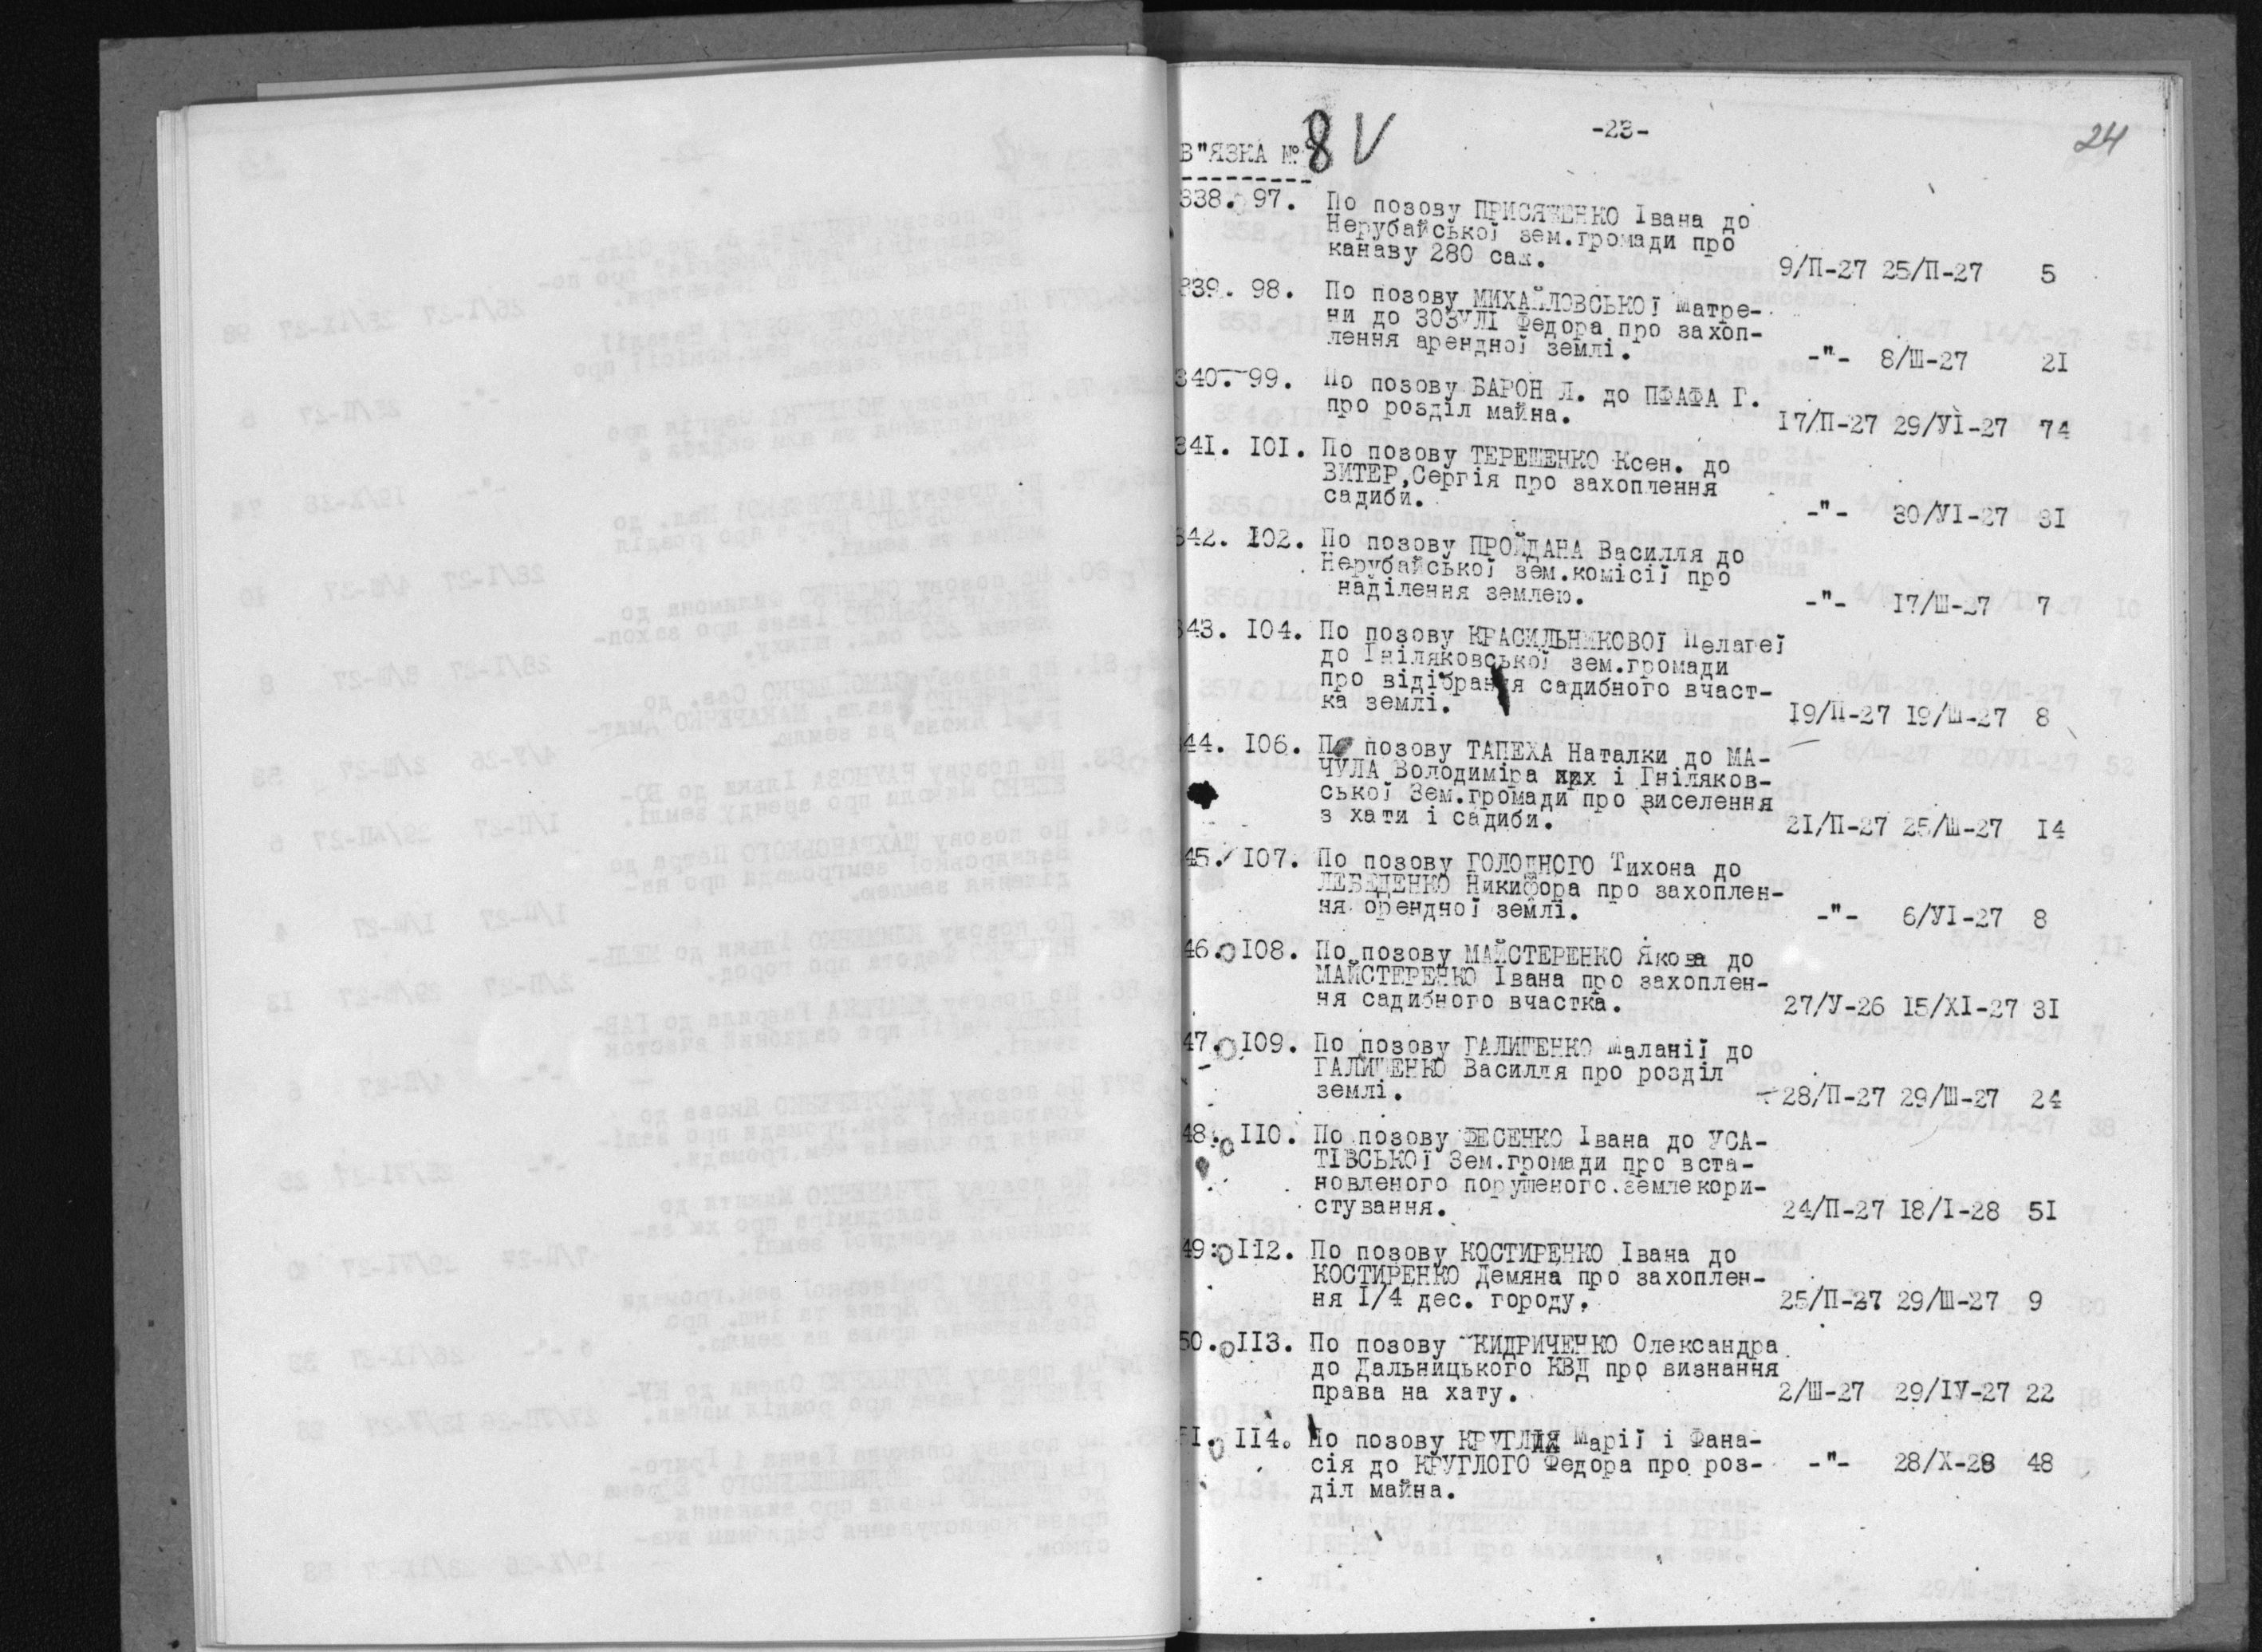 -23-
24
В"ЯЗКА № 8 V
338. 97. По позову ПРИСЯЖЕНКО Івана до
Нерубайської зем.громади про
канаву 280 саж. 9/П-27 25/П-27 5
339. 98. По позову МИХАЙЛОВСЬКОЇ Матре-
ни до ЗОЗУЛІ Федора про захоп-
лення арендної землі. -"- 8/Ш-27 2I
340. 99. По позову БАРОН Л. до ПФАФА Г.
про розділ майна. I7/П-27 29/УІ-27 74
34I. IOI. По позову ТЕРЕЩЕНКО Ксен. до
ЗИТЕР,Сергія про захоплення
садиби. -"- 30/УІ-27 3I
342. IO2. По позову ПРОЙДАНА Василля до
Нерубайської зем.комісії про
наділення землею. -"- I7/Ш-27 7
343. IO4. По позову КРАСИЛЬНИКОВОЇ Пелагеї
до Гніляковської зем.громади
про відібрання садибного вчаст-
ка землі. I9/П-27 I9/Ш-27 8
44. IO6. По позову ТАПЕХА Наталки до МА-
ЧУЛА Володиміра і Гніляков-
ської Зем.громади про виселення
з хати і садиби. 2I/П-27 25/Ш-27 I4
45. IO7. По позову ГОЛОДНОГО Тихона до
ЛЕБЕДЕНКО Никифора про захоплен-
ня орендної землі. -"- 6/УІ-27 8
46. IO8. По позову МАЙСТЕРЕНКО Якова до
МАЙСТЕРЕНКО Івана про захоплен-
ня садибного вчастка. 27/У-26 I5/ХІ-27 3I
47. IO9. По позову ГАЛИТЕНКО Маланії до
ГАЛИТЕНКО Василля про розділ
землі. 28/П-27 29/Ш-27 24
48. IIO. По позову ФЕСЕНКО Івана до УСА-
ТІВСЬКОЇ Зем.громади про вста-
новленого порушеного.землекори-
стування. 24/П-27 I8/І-28 5I
49. II2. По позову КОСТИРЕНКО Івана до
КОСТИРЕНКО Демяна про захоплен-
ня I/4 дес. городу. 25/П-27 29/Ш-27 9
50. II3. По позову КИДРИЧЕНКО Олександра
до Дальницького КВД про визнання
права на хату. 2/Ш-27 29/ІУ-27 22
5I. II4. По позову КРУГЛІЯ Марії і Фана-
сія до КРУГЛОГО Федора про роз- -"- 28/Х-28 48
діл майна.